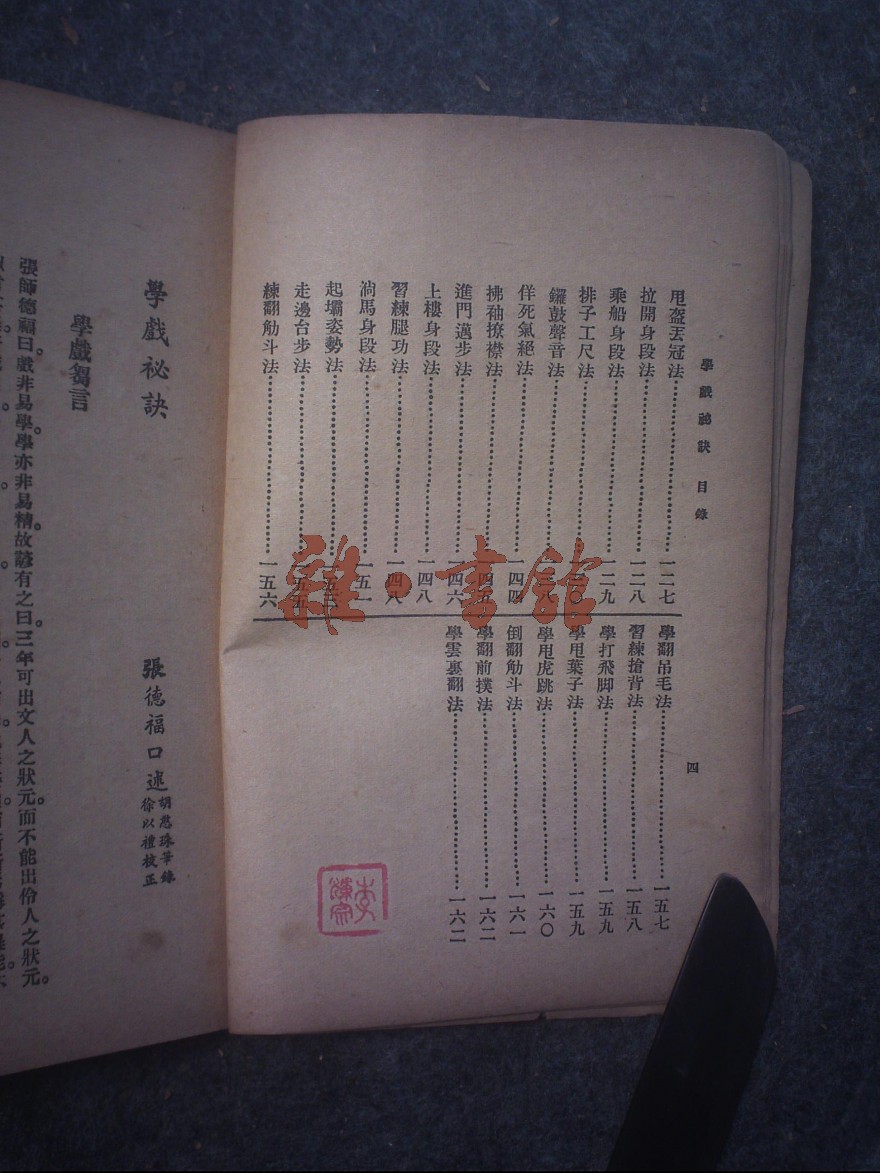 學戲祕訣 目錄
四
甩盔丟冠法 一二七
拉開身段法 一二八
乘船身段法 一二九
排子工尺法
鑼鼓聲音法
佯死氣絕法 一四四
拂袖撩襟法 一四五
進門邁步法 一四六
上樓身段法 一四八
習練腿功法 一四八
淌馬身段法 一五一
起壩姿勢法 一五三
走邊台步法 一五五
練翻觔斗法 一五六
學翻吊毛法 一五七
習練搶背法 一五八
學打飛脚法 一五九
學甩葉子法 一五九
學甩虎跳法 一六〇
倒翻觔斗法 一六一
學翻前撲法 一六二
學雲裏翻法 一六二
雜·書館
學戲祕訣
張德福口述
胡憨珠筆錄
徐以禮校正
學戲芻言
張師德福曰。戲非易學。學亦非易精。故諺有之曰。三年可出文人之狀元。而不能出伶人之狀元。